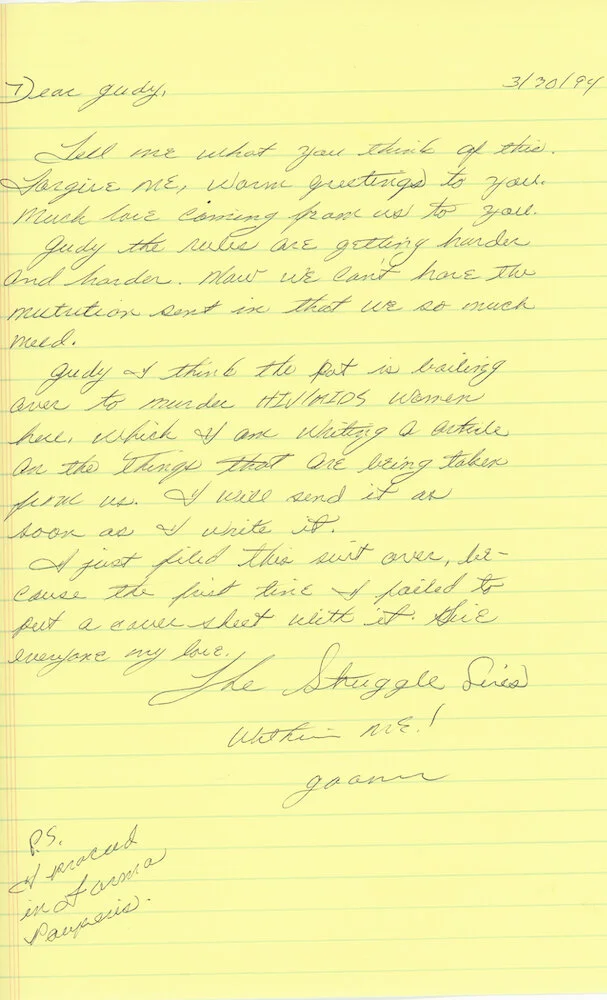 3/30/94
Dear Judy,
Tell me what you think of this.
Forgive ME, warm greetings to you.
Much love coming from us to you.
Judy the rules are getting harder
and harder. Now we can't have the
nutrition sent in that we so much
need.
Judy I think the pot is boiling
over to murder HIV/AIDS women
here, which I am writing a article
on the things that are being taken
from us. I will send it as
soon as I write it.
I just filed this suit over, be-
cause the first time I failed to
put a cover sheet with it. Give
everyone my love.
The Struggle Lives
Within ME!
Joann
P.S.
I proceed
in Forma
Pauperis.